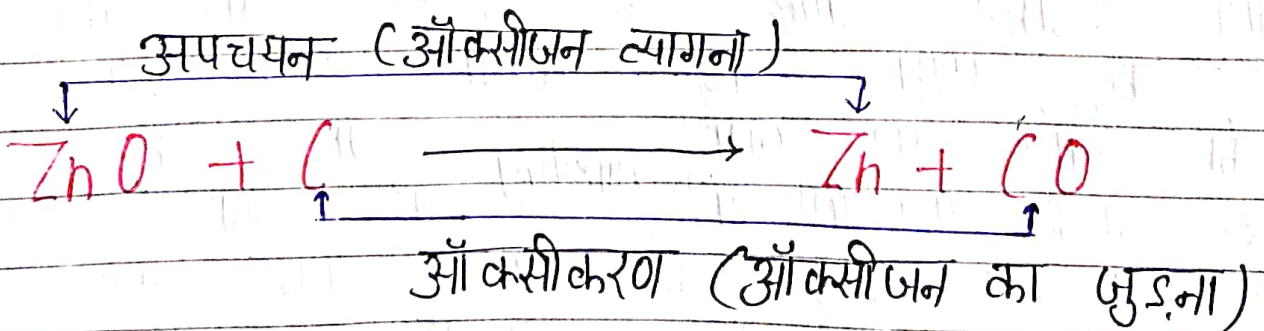 अपचयन (ऑक्सीजन त्यागना)
ZnO + C → Zn + CO
ऑक्सीकरण (ऑक्सीजन का जुड़ना)